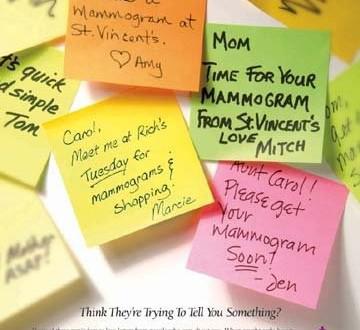 mammogram at
St. Vincent's.
♡ Amy
's quick
d simple
Tom
MOM
TIME FOR YOUR
MAMMOGRAM
FROM ST. VINCENT'S
LOVE
MITCH
Carol,
Meet me at Rich's
Tuesday for
mammograms &
shopping.
Marcie
Aunt Carol!
Please get
your
mammogram
Soon!
-Jen
Mother
ASAP!
Think They're Trying To Tell You Something?